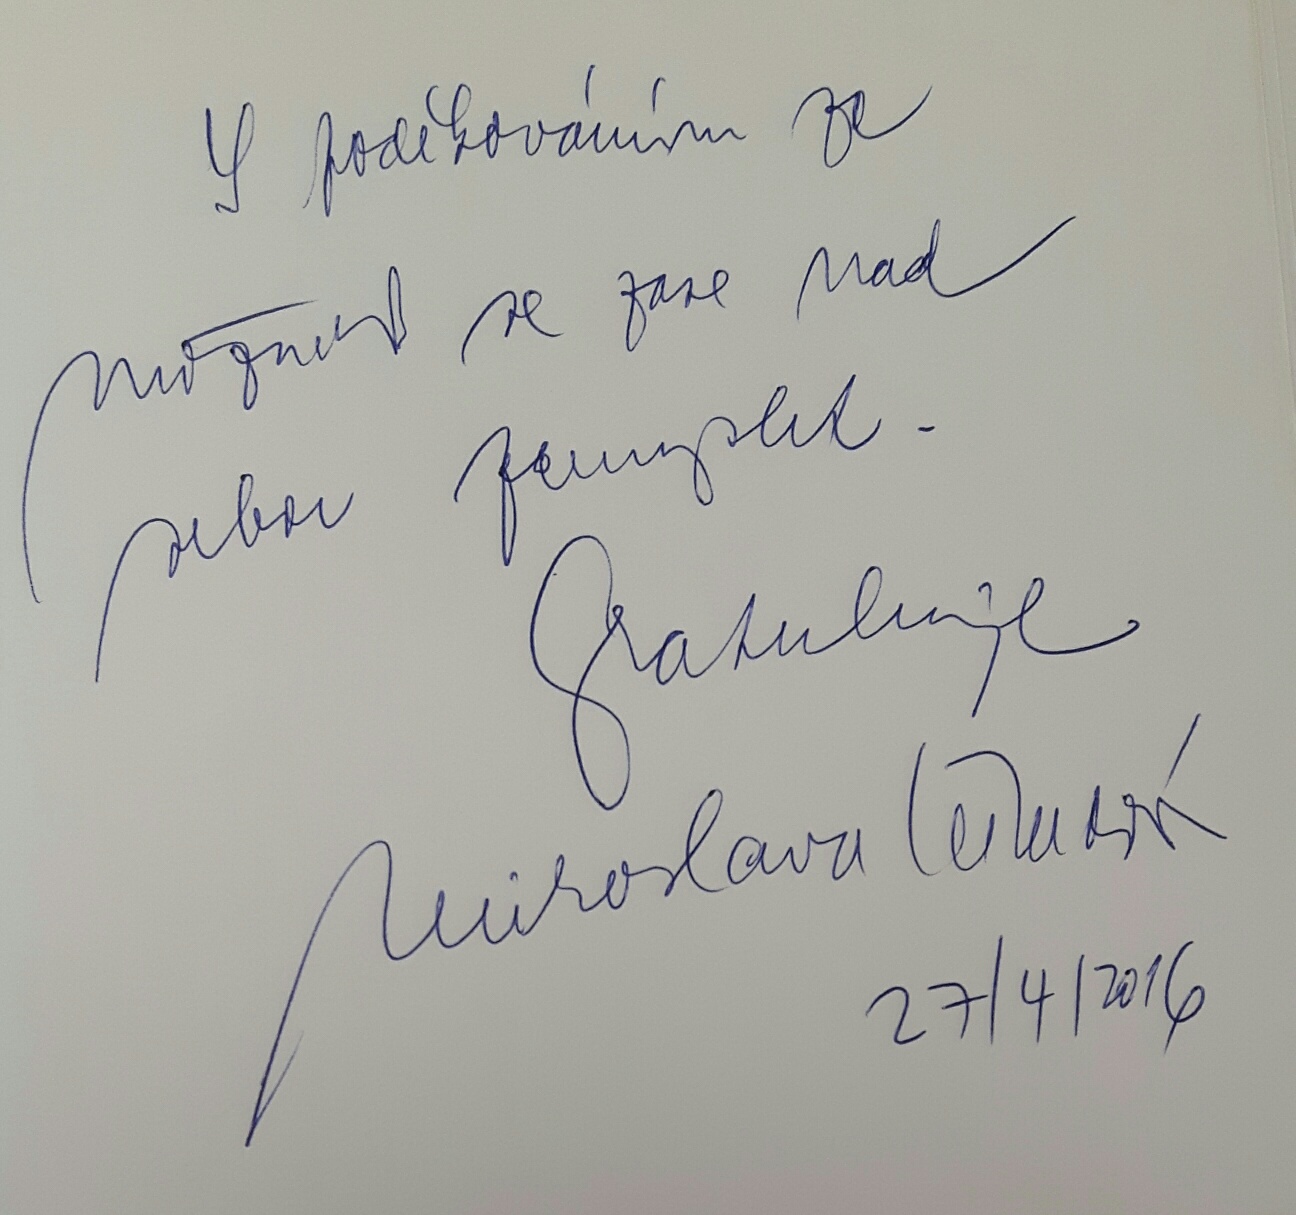 S poděkováním za
možnost se zase nad
sebou zamyslet.
Gratuluje
Miroslava
27/4/2016